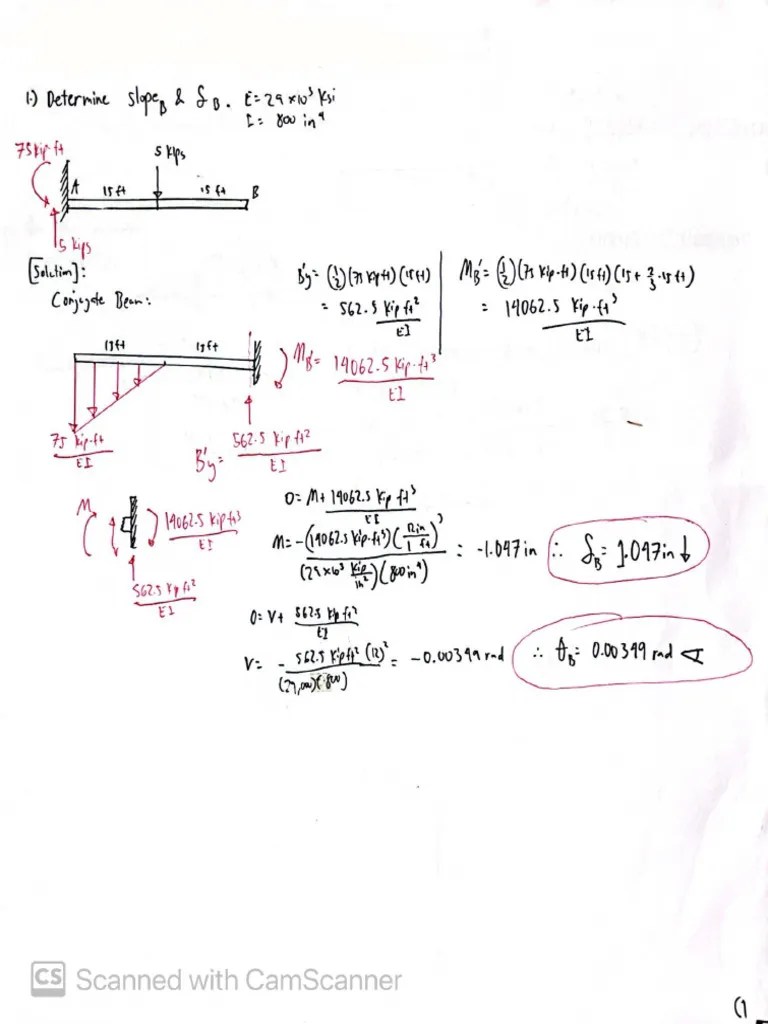 1.) Determine slope_B & δ_B. E = 29 × 10³ Ksi
I = 800 in⁴
75 Kip·ft
5 Kips
A 15 ft 15 ft B
5 Kips
[Solution]:
Conjugate Beam:
B'y = (1/2)(75 Kip·ft)(15 ft)
= 562.5 Kip ft² / EI
M_B' = (1/2)(75 Kip·ft)(15 ft)(15 + 2/3 · 15 ft)
= 14062.5 Kip·ft³ / EI
15 ft 15 ft
M_B' = 14062.5 Kip·ft³ / EI
75 Kip·ft / EI
B'y = 562.5 Kip ft² / EI
M
14062.5 Kip ft³ / EI
562.5 Kip ft² / EI
0 = M + 14062.5 Kip ft³ / EI
M = -(14062.5 Kip·ft³)(12 in / 1 ft)³ / (29×10³ Kip/in²)(800 in⁴) = -1.047 in ∴ δ_B = 1.047 in ↓
0 = V + 562.5 Kip ft² / EI
V = - 562.5 Kip ft² (12)² / (29,000)(800) = -0.00349 rad ∴ θ_B = 0.00349 rad
CS Scanned with CamScanner
(1